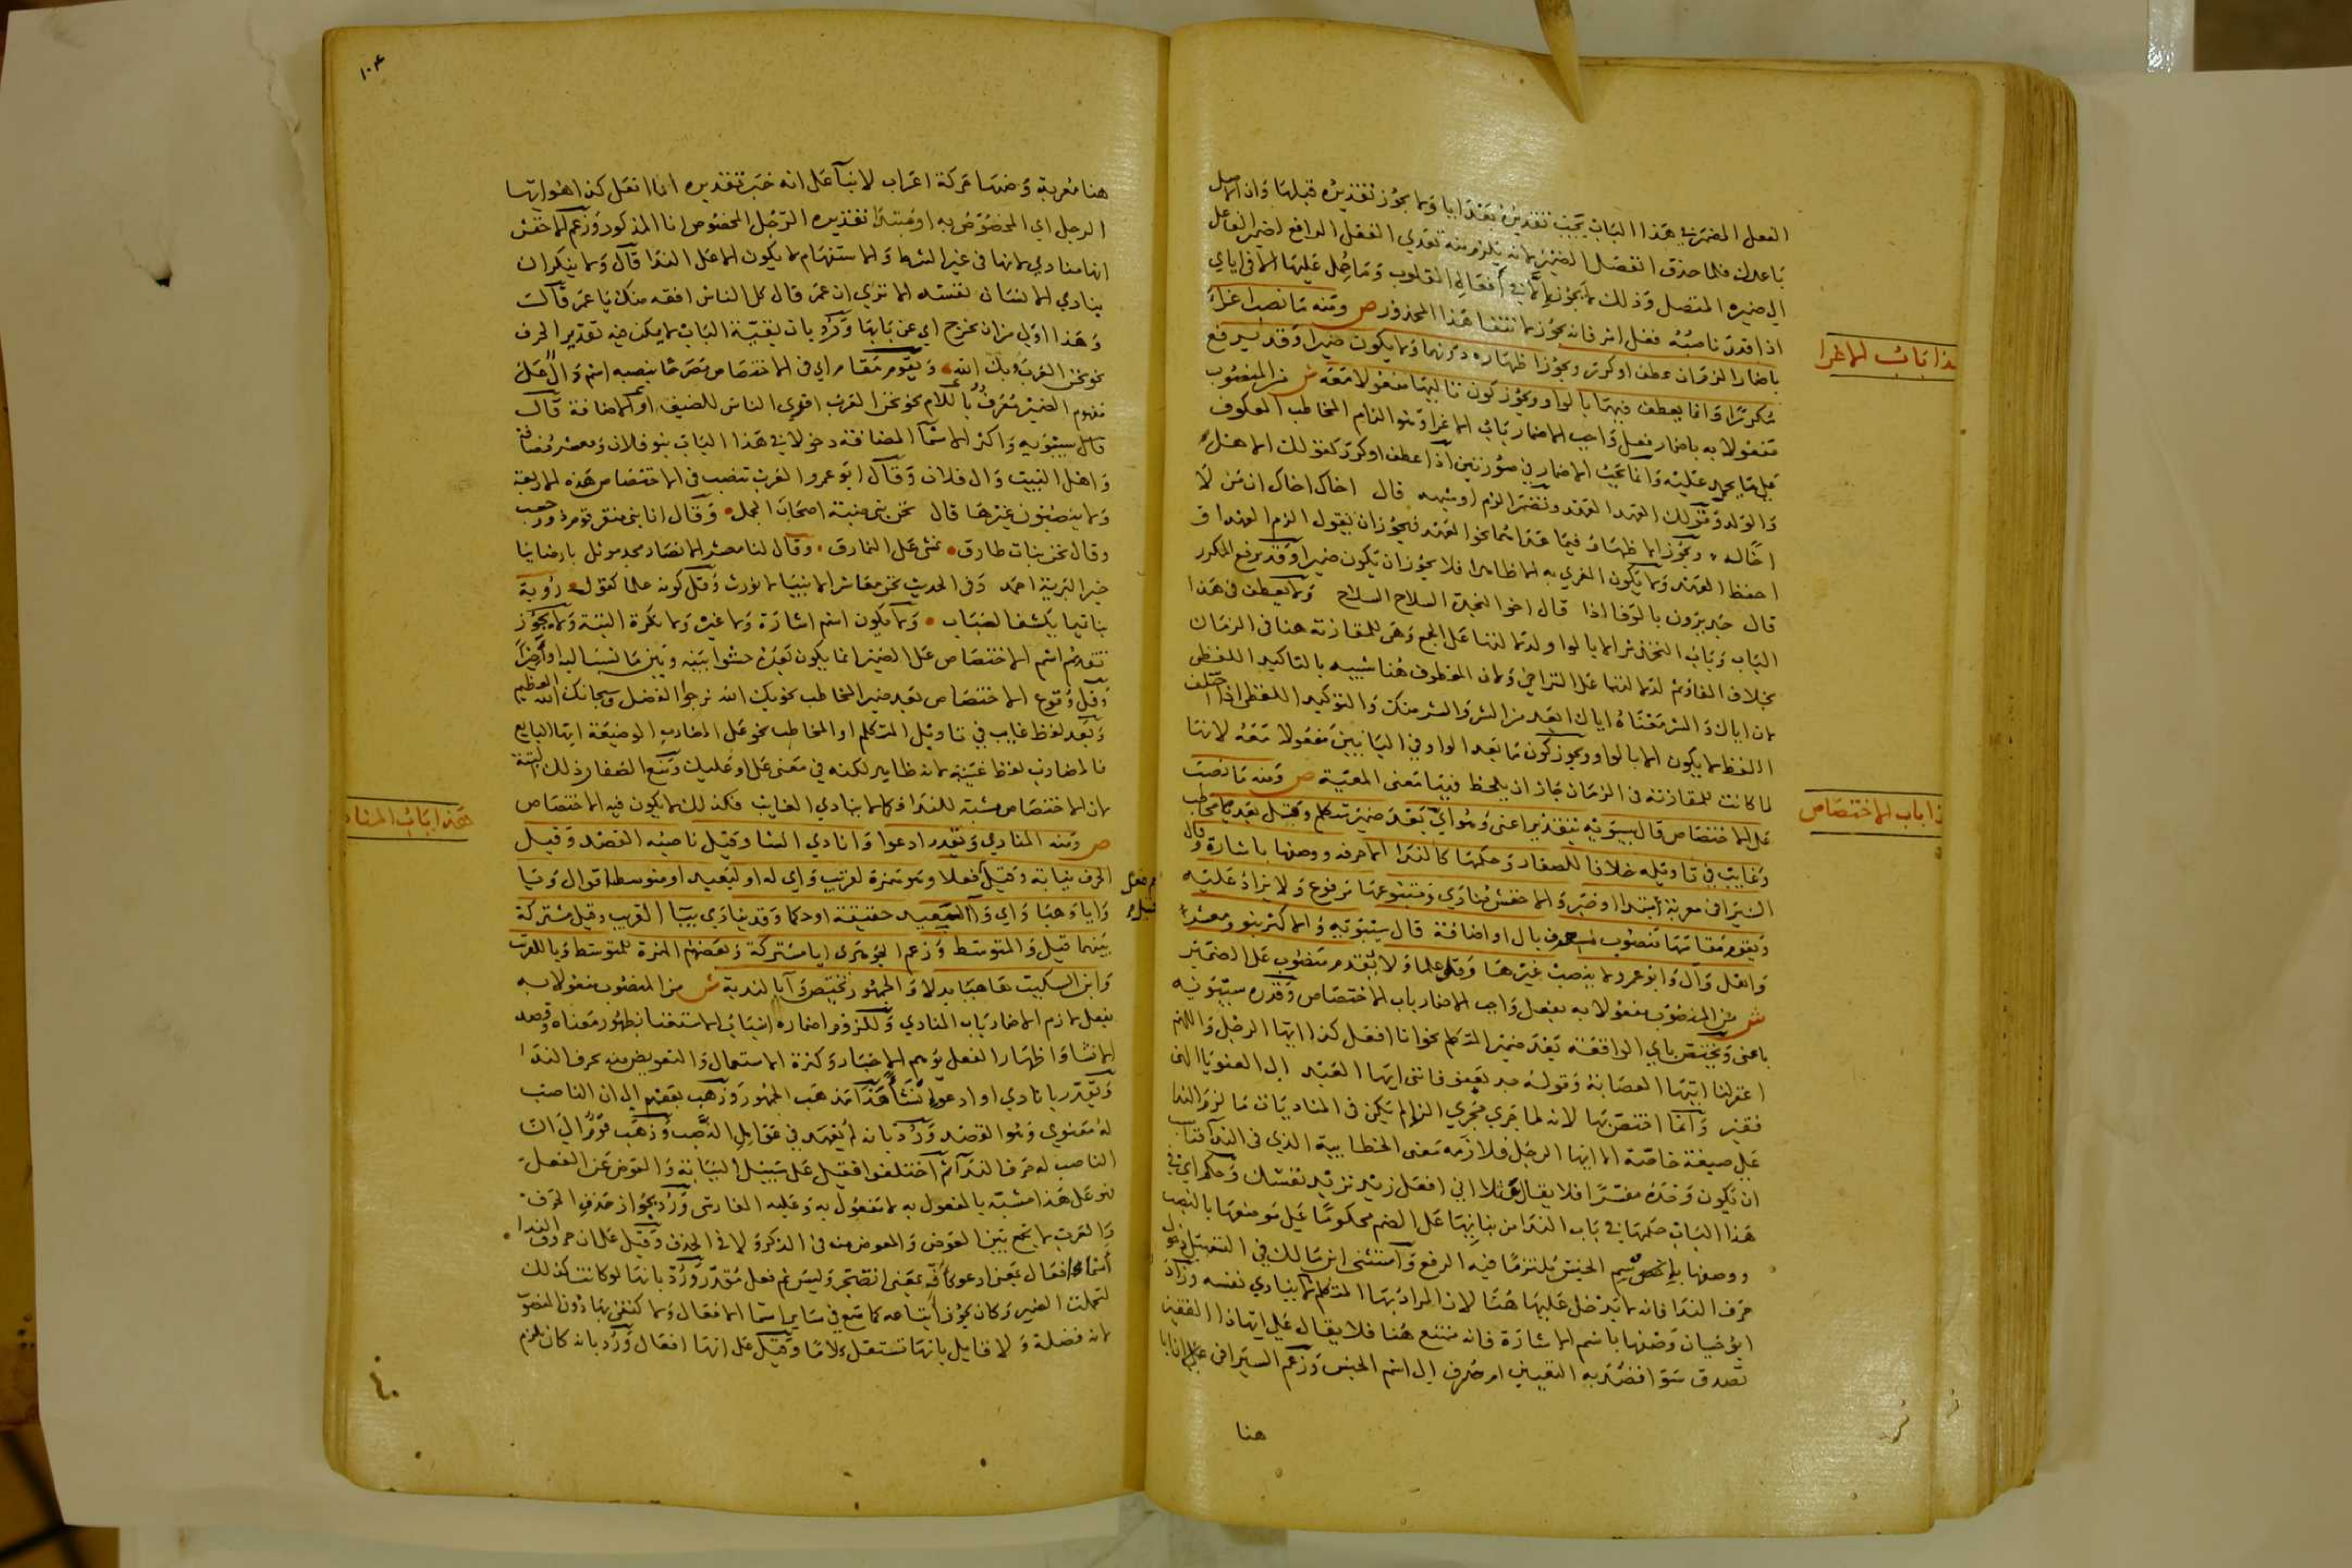 الفعل المضمر في هذا الباب يجب تقديره بعد ايا ولا يجوز تقديره قبلها وان الاصل
باعدك فلما حذف انفصل الضمير لانه يلزم منه تعدي الفعل الرافع لضمير الفاعل
الى ضميره المتصل وذلك لا يجوز الا في افعال القلوب وما حمل عليها اما في اياي
اذا قدر ناصبه فعل امر فانه يجوز لانتفاء هذا المحذور ص ومنه ما نصب اغراء
هذا باب الاغرا
باضمار الزم ان عطف او كرر ويجوز اظهاره دونهما ولا يكون ضميرا وقد يرفع
مكررا وانما يعطف فيهما بالواو ويجوز كون تاليها مفعولا معه ش من المنصوب
مفعولا به باضمار فعل واجب الاضمار باب الاغرا وهو الزام المخاطب العكوف
على ما يحمد عليه وانما يجب الاضمار في صورتين اذا عطف او كرر كقولك الاهل
والولد وقولك العهد العهد وتضمر الزم او شبهه قال اخاك اخاك ان من لا
اخا له ويجوز الاظهار فيما عدا هما نحو العهد فيجوز ان يقول الزم العهد او
احفظ العهد ولا يكون المغرى به الا ظاهرا فلا يجوز ان يكون ضميرا وقد يرفع المكرر
قال جديرون بالوفا اذا قال اخو النجدة السلاح السلاح ولا يعطف في هذا
الباب وباب التحذير الا بالواو لدلالتها على الجمع وهي للمقارنة هنا في الزمان
بخلاف الفا وثم لدلالتهما على التراخي ولان المعطوف هنا شبيه بالتاكيد اللفظى
لان اياك والشر معناه اياك ابعد من الشر والشر منك والتوكيد اللفظى اذا اختلف
اللفظ لا يكون الا بالواو ويجوز كون ما بعد الواو في البابين مفعولا معه لانها
لما كانت للمقارنة في الزمان جاز ان يلحظ فيها معنى المعية ص ومنه ما نصب
هذا باب الاختصاص
على الاختصاص قال سيبويه بتقدير اعنى وهو اي بعد ضمير متكلم وقيل بعد مخاطب
وغايب في تاويله خلافا للصفار وحكمها كالندا الا حرفه ووصفها باشارة وقال
السيرافى معربة مبتدا او خبر والاخفش منادي ومتبوعها مرفوع ولا يزاد عليه
ويقوم مقامها منصوب معرف بال او اضافة قال سيبويه والاكثر بنو ومعشر
واهل وال وابو عمرو لا ينصب غيرها وقل علما ولا يقدم منصوب على الضمير
ش من المنصوب مفعولا به بفعل واجب الاضمار باب الاختصاص وقدره سيبويه
باعنى ويختص باي الواقعة بعد ضمير المتكلم نحو انا افعل كذا ايها الرجل واللهم
اغفر لنا ايتها العصابة وقوله جد بعفو فاننى ايها العبد الى العفو يا الهى
فقير وانما اختص بها لانه لما جري مجري الندا لم يكن في المناديات ما لزم الندا
على صيغة خاصة الا ايها الرجل فلازمه معنى الخطابية الذي في الندا فناسب
ان تكون وحده مفسرا فلا يقال مثلا انى افعل زيد تريد نفسك وحكم اي في
هذا الباب حكمها في باب الندا من بنايها على الضم محكوما على موضعها بالنصب
ووصفها باسم الجنس ملتزما فيه الرفع واستثنى ابن مالك في التسهيل دخول
حرف الندا فانه لا يدخل عليها هنا لان المراد بها المتكلم لا ينادي نفسه وزاد
ابو حيان وصفها باسم الاشارة فانه ممتنع هنا فلا يقال على ايهاذا الفقير
تصدق سوا قصد به التعيين او صرف الى اسم الجنس وزعم السيرافي على ان ايا
هنا
١٠٤
هنا معربة وضمتها حركة اعراب لا بناء على انه خبر تقديره انا افعل كذا هو ايها
الرجل اي المخصوص به او مبتدا تقديره الرجل المخصوص انا المذكور وزعم الاخفش
انها منادي لانها في غير الشرط والاستفهام لا يكون الا على الندا قال ولا ينكر ان
ينادي الانسان نفسه الا تري ان عمر قال كل الناس افقه منك يا عمر قال
وهذا اولى من ان يخرج اي عن بابها ورد بان بقية الباب لا يمكن فيه تقدير الحرف
نحو نحن العرب وبك الله ويقوم مقام اي في الاختصاص مصرحا بنصبه اسم دال على
مفهوم الضمير معرف باللام نحو نحن العرب اقري الناس للضيف او الاضافة قال
قال سيبويه واكثر الاسما المضافة دخولا في هذا الباب بنو فلان ومعشر مضافة
واهل البيت وال فلان وقال ابو عمرو العرب تنصب في الاختصاص هذه الاربعة
ولا ينصبون غيرها قال نحن بنى ضبة اصحاب الجمل وقال انا بنى منقر قوم ذوو حسب
وقال نحن بنات طارق نمشى على النمارق وقال لنا معشر الانصار مجد موثل بارضائنا
خير البرية احمد وفى الحديث نحن معاشر الانبيا لا نورث وقل كونه علما كقول روبة
بنا تميما يكشف الضباب ولا يكون اسم اشارة ولا غيره ولا نكرة البتة ولا يجوز
تقديم اسم الاختصاص على الضمير انما يكون بعده حشوا بينه وبين ما نسب اليه او اخيرا
وقل وقوع الاختصاص بعد ضمير المخاطب نحو بك الله نرجو الفضل وسبحانك الله العظيم
وبعد لفظ غايب في تاويل المتكلم او المخاطب نحو على المضارب الوضيعة ايها البايع
فالمضارب لفظ غيبة لانه ظاهر لكنه في معنى على او عليك ومنع الصفار ذلك البتة
لان الاختصاص مشبه للندا فكما لا ينادي الغايب فكذلك لا يكون فيه الاختصاص
هذا باب المنادي
ص ومنه المنادي ويقدر ادعوا وانادي انشا وقيل ناصبه القصد وقيل
الحرف نيابة وقيل فعلا وهو همزة لقريب واي له او لبعيد او متوسط اقوال ويا
وايا وهيا واي وآ لبعيد حقيقة او حكما وقد ينادي بيا القريب وقيل مشتركة
بينهما قيل والمتوسط وزعم الجوهري ايا مشتركة وبعضهم الهمزة للمتوسط ويا للقريب
وابن السكيت ها هيا بدلا والجمهور تختص وا بالندبة ش من المنصوب مفعولا به
بفعل لازم الاضمار باب المنادي وللزوم اضماره اسباب الاستغنا بظهور معناه وقصد
الانشا واظهار الفعل يوهم الاخبار وكثرة الاستعمال والتعويض منه بحرف الندا
ويقدر بانادي او ادعو انشا هذا مذهب الجمهور وذهب بعضهم الى ان الناصب
له معنوي وهو القصد ورد بانه لم يعهد في عوامل النصب وذهب قوم الى ان
الناصب له حرف الندا ثم اختلفوا فقيل على سبيل النيابة والعوض عن الفعل
فهو على هذا مشبه بالمفعول به لا مفعول به وعليه الفارسى ورد بجواز حذف الحرف
والعرب لا تجمع بين العوض والمعوض منه في الذكر ولا في الحذف وقيل على ان حروف الندا
اسما افعال بمعنى ادعو كاف بمعنى اتضجر وليس ثم فعل مقدر ورد بانها لو كانت كذلك
لتحملت الضمير وكان يجوز اتباعه كما سمع في ساير اسما الافعال ولا كتفى بها دون المنصوب
لانه فضلة ولا قايل بانها تستقل كلاما وقيل على انها افعال ورد بانه كان يلزم